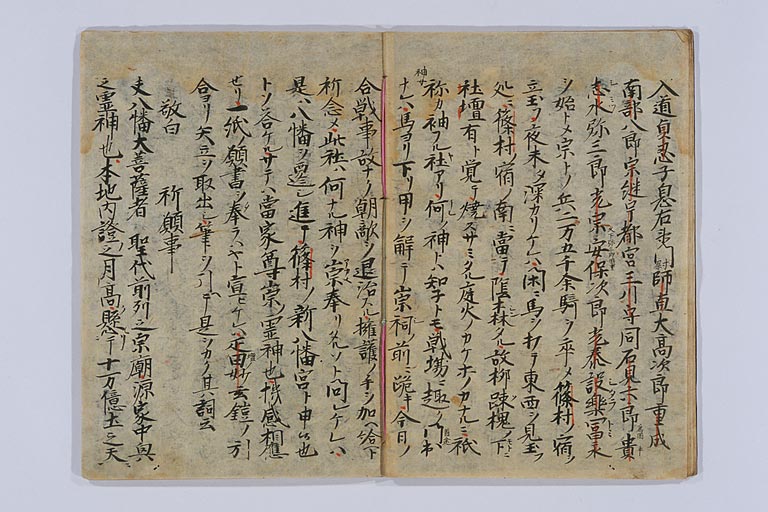 入道貞恵子息右衛門 師直大高次郎重成
南部八郎宗継宇都宮三川守同石見六郎貴
志水弥三郎光宗安保次郎光泰設樂冨永
ヲ始トメ宗トノ兵二万五千余騎ヲ率メ篠村ノ宿ノ
立玉フ夜未タ深カリケレハ閑ニ馬ヲ打テ東西ヲ見玉フ
処ニ篠村ノ宿ノ南ニ當テ陰森タル故柳疎槐ノ下ニ
社壇有ト覚テ焼スサミタル庭火ノカケホノカナルニ祇
称カ袖フル社アリ何ノ神トハ知子トモ戦場ニ趣ク
ナレハ馬ヨリ下リ甲ヲ解テ崇祠ノ前ニ跪キ今日ノ
合戦事故ナク朝敵ヲ退治スル擁護ノ手ヲ加ヘ給ヘト
祈念メ此社ハ何ナル神ヲ崇奉リタルソト問ケレハ
是ハ八幡ヲ遷シ進テ篠村ノ新八幡宮ト申ス也
トソ答ケルサテハ當家尊崇ノ霊神也機感相應
セリ一紙ノ願書ヲ奉ラハヤト宣ヒケレハ疋田妙玄鎧ノ引
合ヨリ矢立ヲ取出シ筆ヲ引テ是ヲカク其詞云
敬白 祈願事
夫八幡大菩薩者 聖代前列之宗廟源家中興
之霊神也本地内證之月高懸于十万億土之天